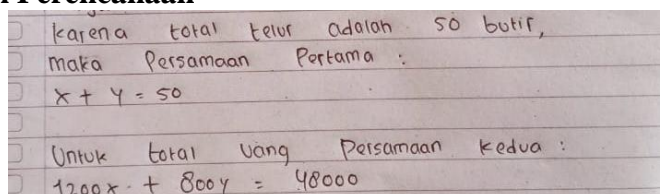 Perencanaan
karena total telur adalah 50 butir,
maka Persamaan Pertama :
x + y = 50
Untuk total uang Persamaan kedua :
1200x + 800y = 48000